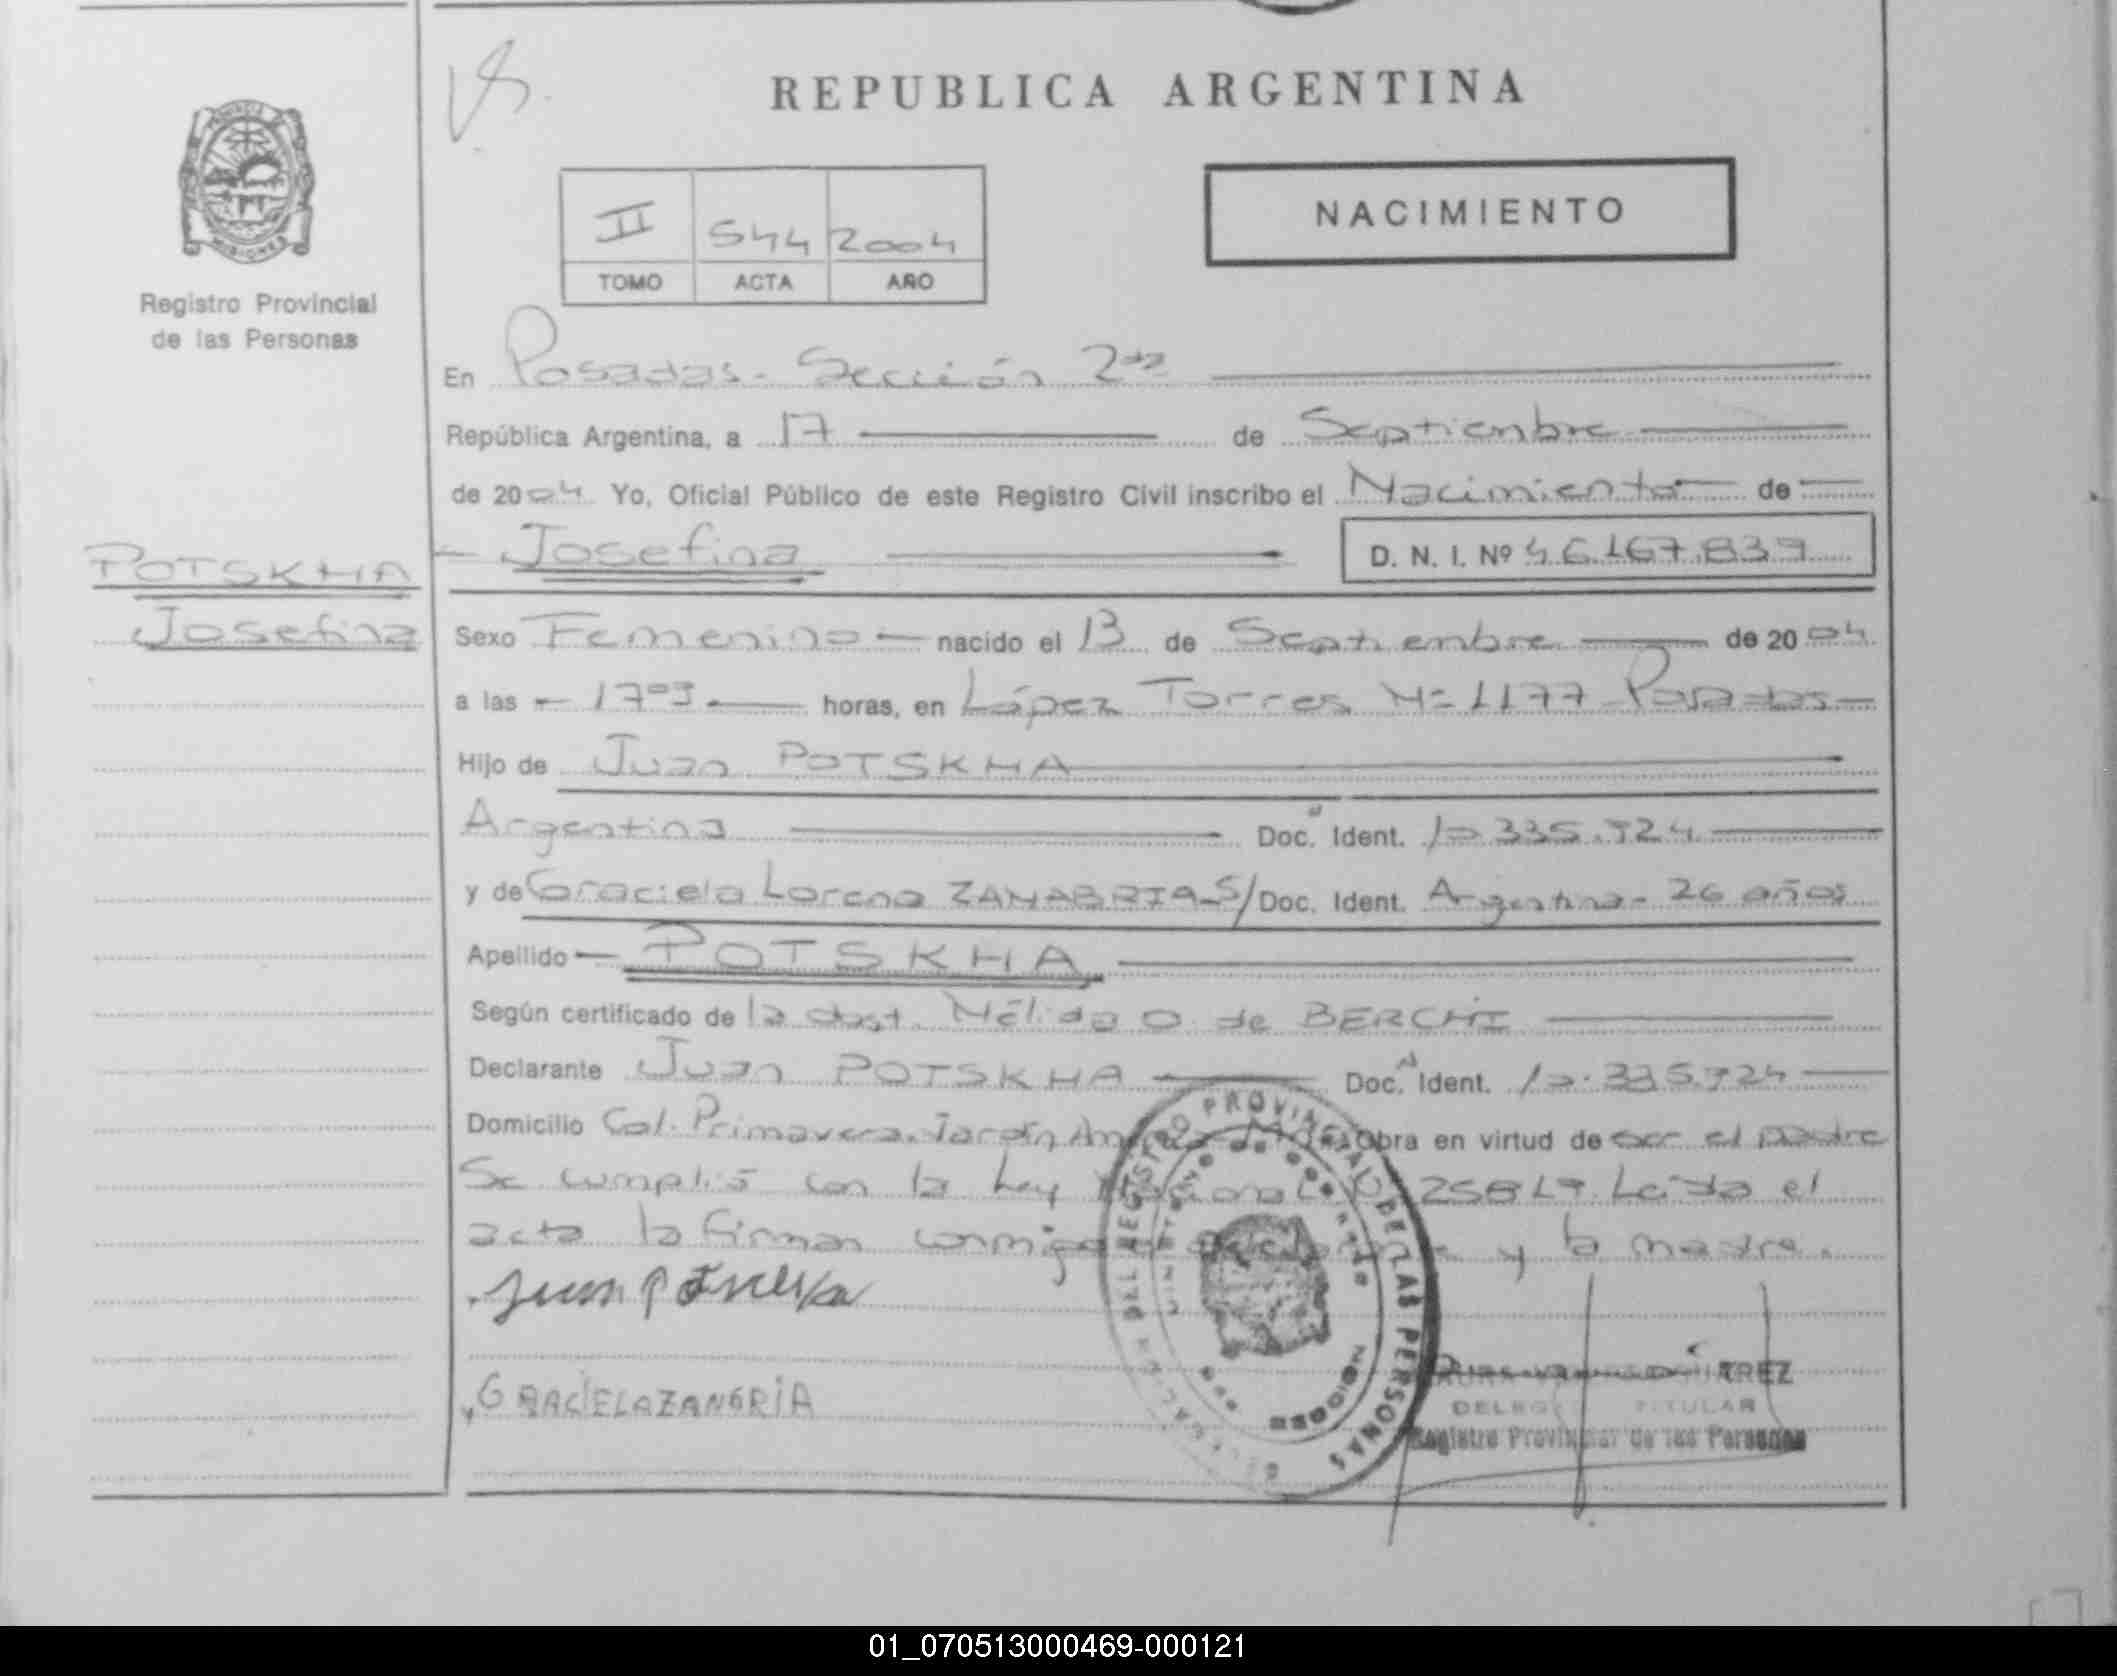 REPUBLICA ARGENTINA
NACIMIENTO
II 544 2004
TOMO ACTA AÑO
MISIONES
Registro Provincial
de las Personas
En Posadas - Sección 2da
República Argentina, a 17 de Septiembre
de 2004 Yo, Oficial Público de este Registro Civil inscribo el Nacimiento de
Josefina D. N. I. Nº 46.167.839
POTSKHA
Josefina
Sexo Femenino nacido el 13 de Septiembre de 2004
a las 17 horas, en López Torres Nº 1177 Posadas
Hijo de Juan POTSKHA
Argentina Doc. Ident. 10.335.924
y de Graciela Lorena ZANABRIA S/Doc. Ident. Argentina - 26 años
Apellido POTSKHA
Según certificado de la obst. Nélida O. de BERCHI
Declarante Juan POTSKHA Doc. Ident. 10.335.924
Domicilio Col. Primavera. Jardín América Mnes. Obra en virtud de ser el padre
Se cumplió con la Ley Nacional Nº 25819 Leída el
acta la firman conmigo el declarante y la madre.
Juan
GRACIELA ZANBRIA
DEL REGISTRO PROVINCIAL DE LAS PERSONAS
MISIONES
TITULAR
Registro Provincial de las Personas
01_070513000469-000121